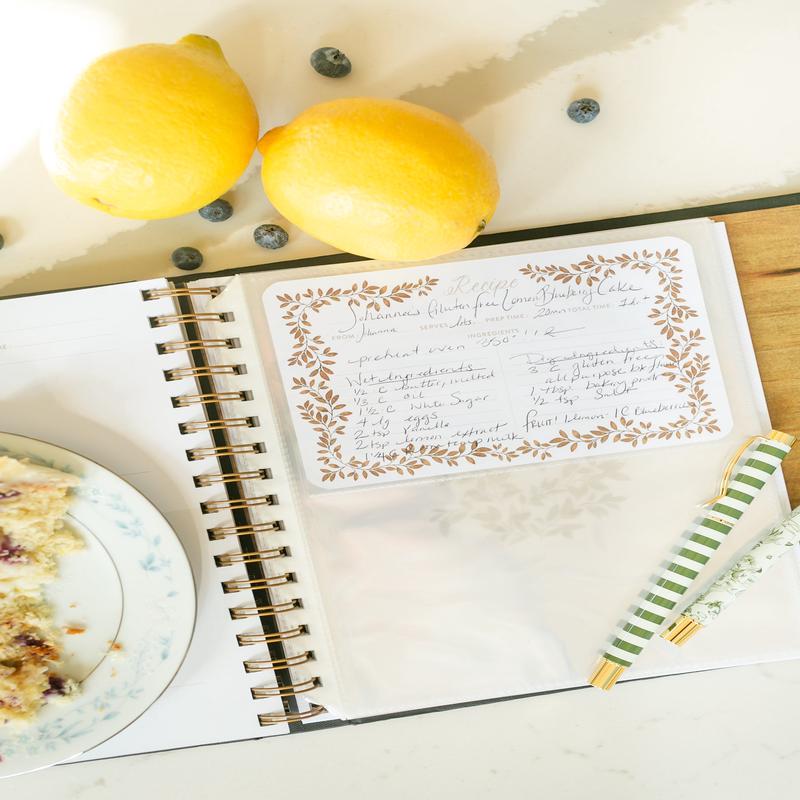 Recipe
Johanna's Gluten free Lemon Blueberry Cake
FROM: Johanna SERVES: lots! PREP TIME: 20min TOTAL TIME: 1 hr +
INGREDIENTS
preheat oven 350°
Wet Ingredients
1/2 C butter, melted
1/3 C oil
1 1/2 C White Sugar
4 lg eggs
2 tsp Vanilla
2 tsp lemon extract
milk
Dry Ingredients:
3 C gluten free
all purpose
1 tbsp baking
1/2 tsp Salt
fruit! Lemon: 1 C Blueberries